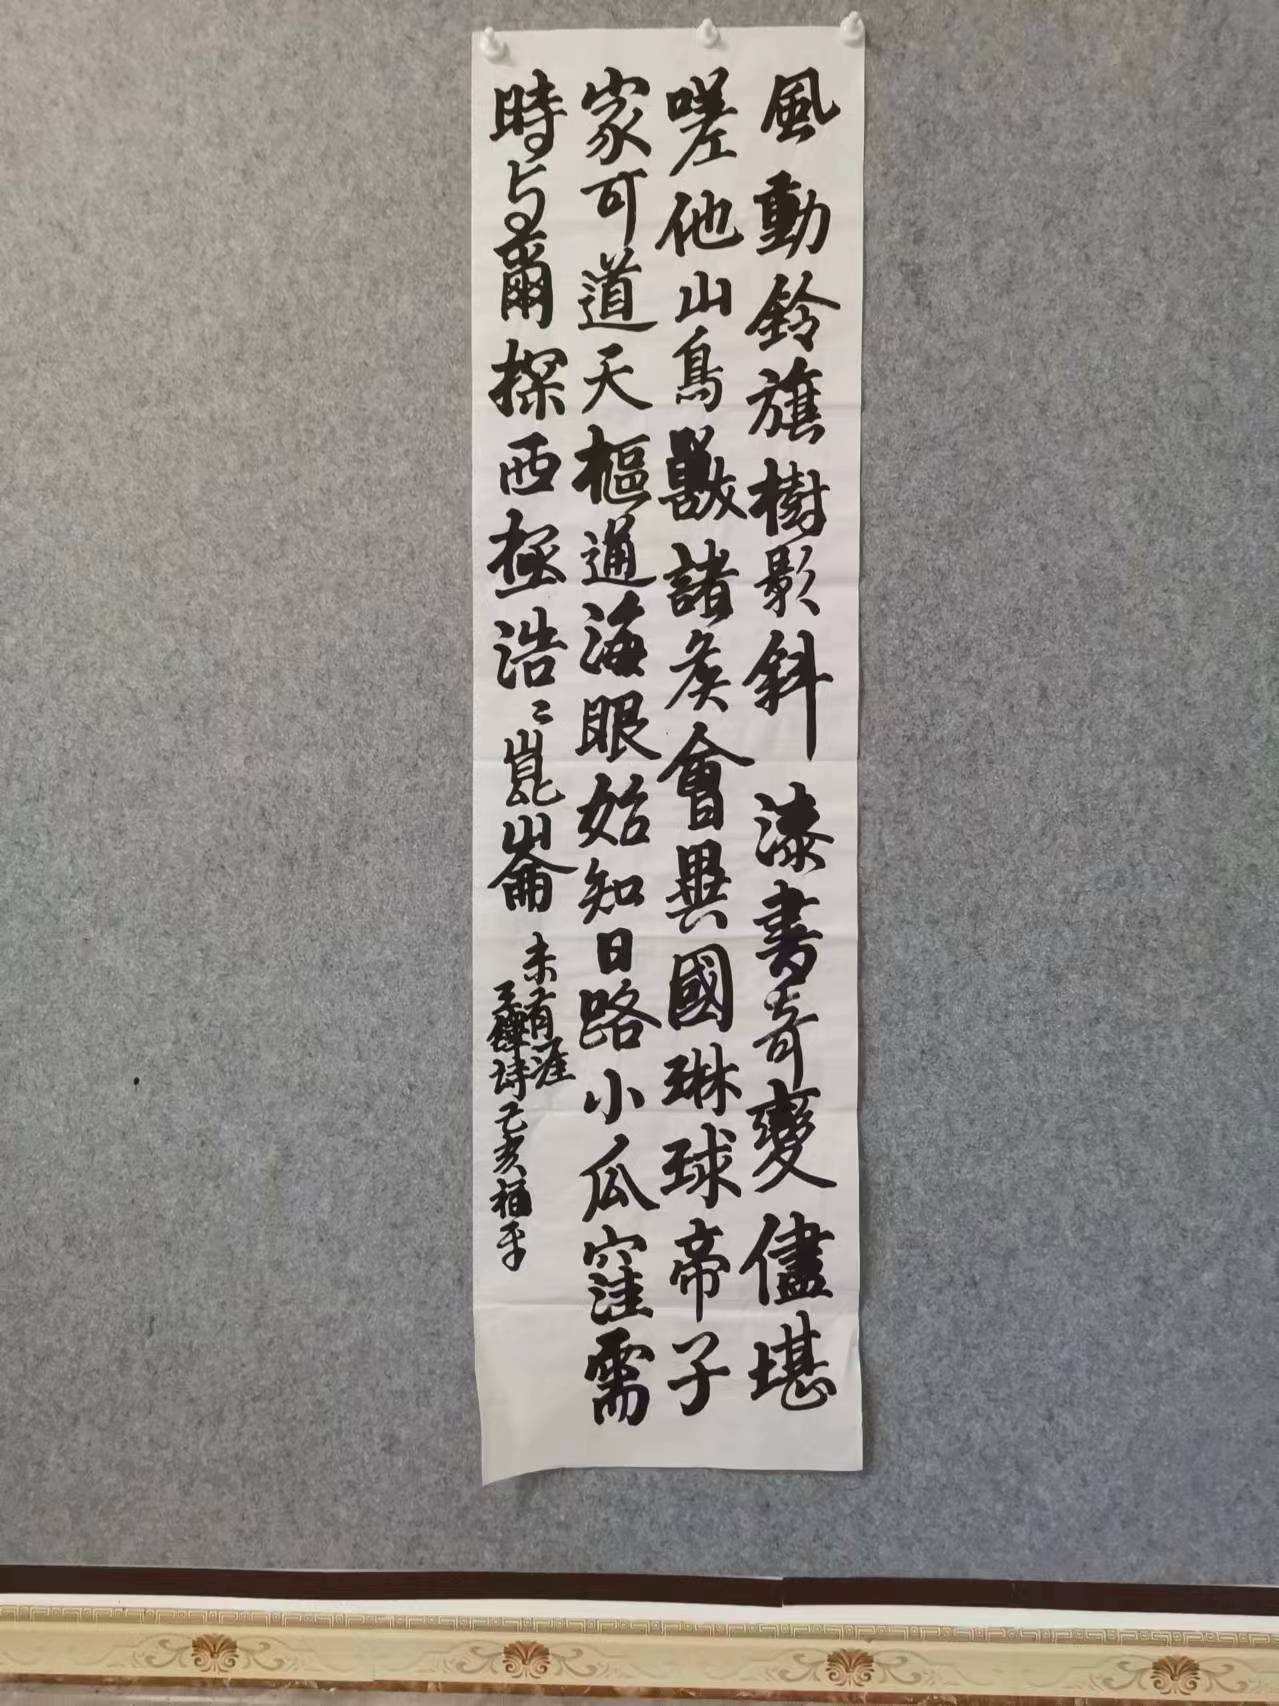 風動鈴旗樹影斜漆書奇變儘堪
嗟他山鳥獸諸矦會異國琳球帝子
家可道天樞通海眼始知日路小瓜窪需
時与爾探西極浩〻崑崙未有涯
子鐸詩己亥栢平